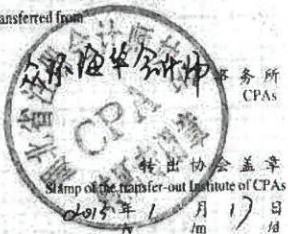 ansferred from
众环海华会计师
事务所
CPAs
湖北省注册会计师协会
CPA
转出协会盖章
Stamp of the transfer-out Institute of CPAs
2015年1月17日
/y /m /d